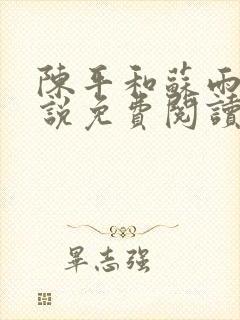 陳平和蘇雨
說免費閱讀
畢志强